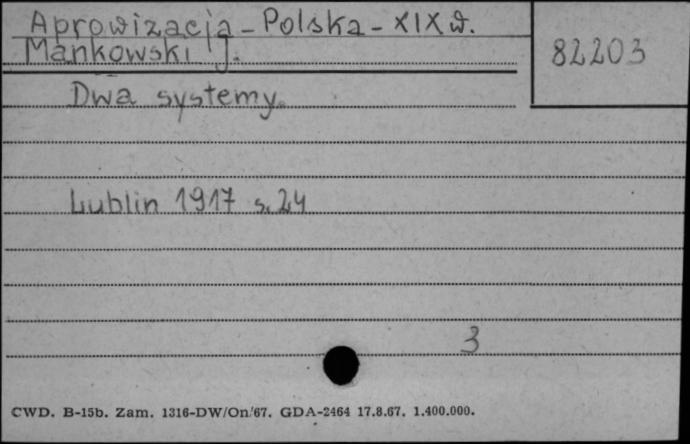 Aprowizacja - Polska - XIX w.
82203
Mańkowski J.
Dwa systemy.
Lublin 1917 s. 24
3
CWD. B-15b. Zam. 1316-DW/On/67. GDA-2464 17.8.67. 1.400.000.